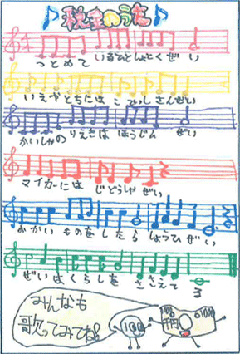 税金のうた
つとめて いるとしょとくぜい
いえやとちには こていしさんぜい
かいしゃの りえきは ほうじん ぜい
マイカーには じどうしゃぜい
おかいものをしたら しょうひぜい
ぜいはくらしを ささえて
みんなも
歌ってみてね